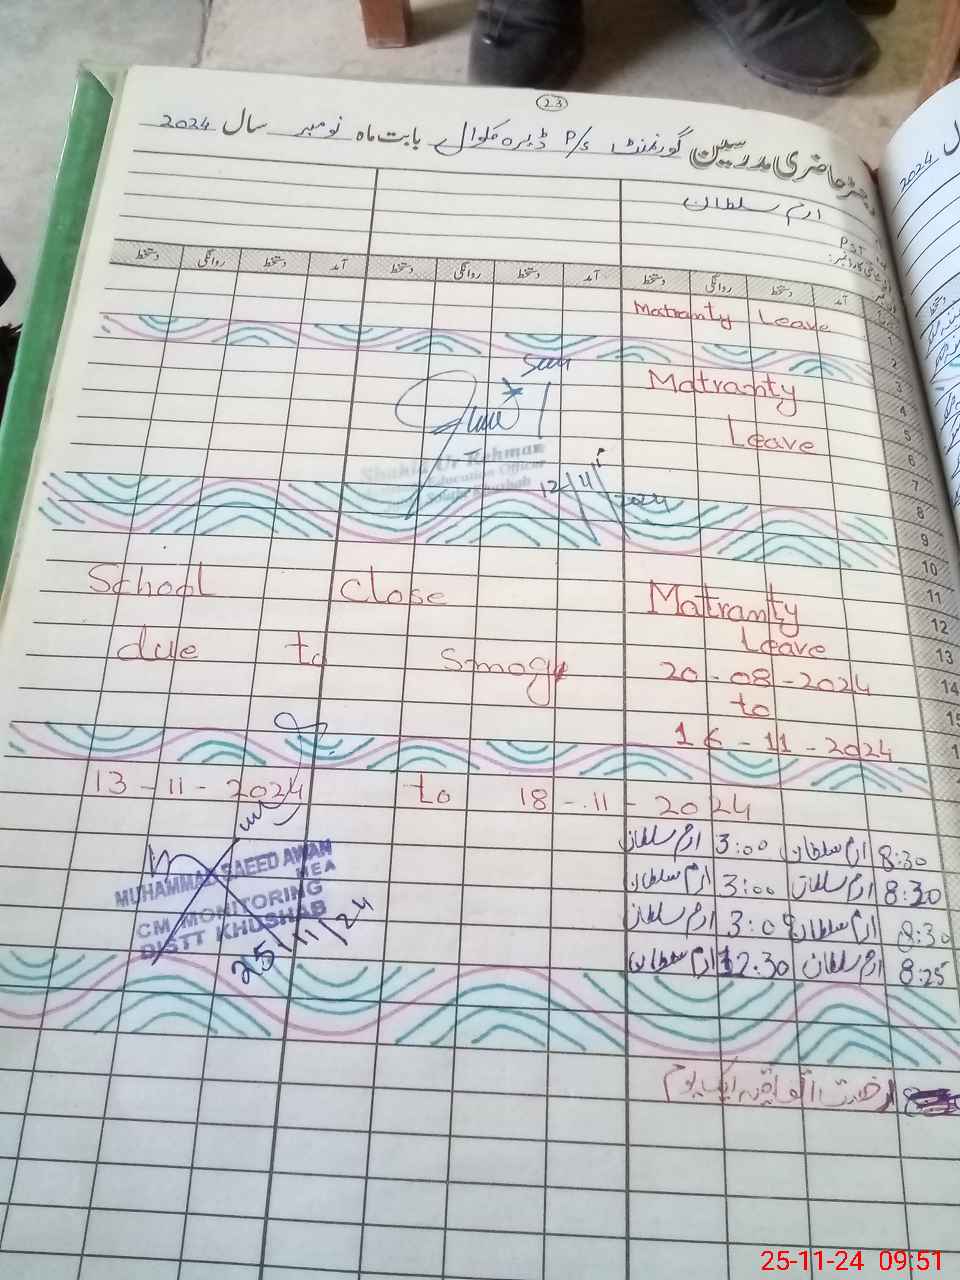 23
رجسٹر حاضری مدرسین گورنمنٹ P/S ڈیرہ مکوال بابت ماہ نومبر سال 2024
ارم سلطان
PST
آمد دستخط روانگی دستخط آمد دستخط روانگی دستخط آمد دستخط روانگی دستخط
Matranty Leave
1
2
Matranty
3
4
Leave
5
6
7
Shahid Ur Rehman
Education Officer
12/11/2024
8
9
10
School Close Matranty
11
12
Leave
due to Smog
13
20-08-2024
14
to
15
16-11-2024
13-11-2024 to 18-11-2024
8:30 ارم سلطان 3:00 ارم سلطان
8:30 ارم سلطان 3:00 ارم سلطان
8:30 ارم سلطان 3:00 ارم سلطان
8:25 ارم سلطان 12:30 ارم سلطان
MUHAMMAD SAEED AWAN
MEA
CM MONITORING
DISTT KHUSHAB
25/11/24
رخصت اتفاقیہ ایک یوم
2024
25-11-24 09:51